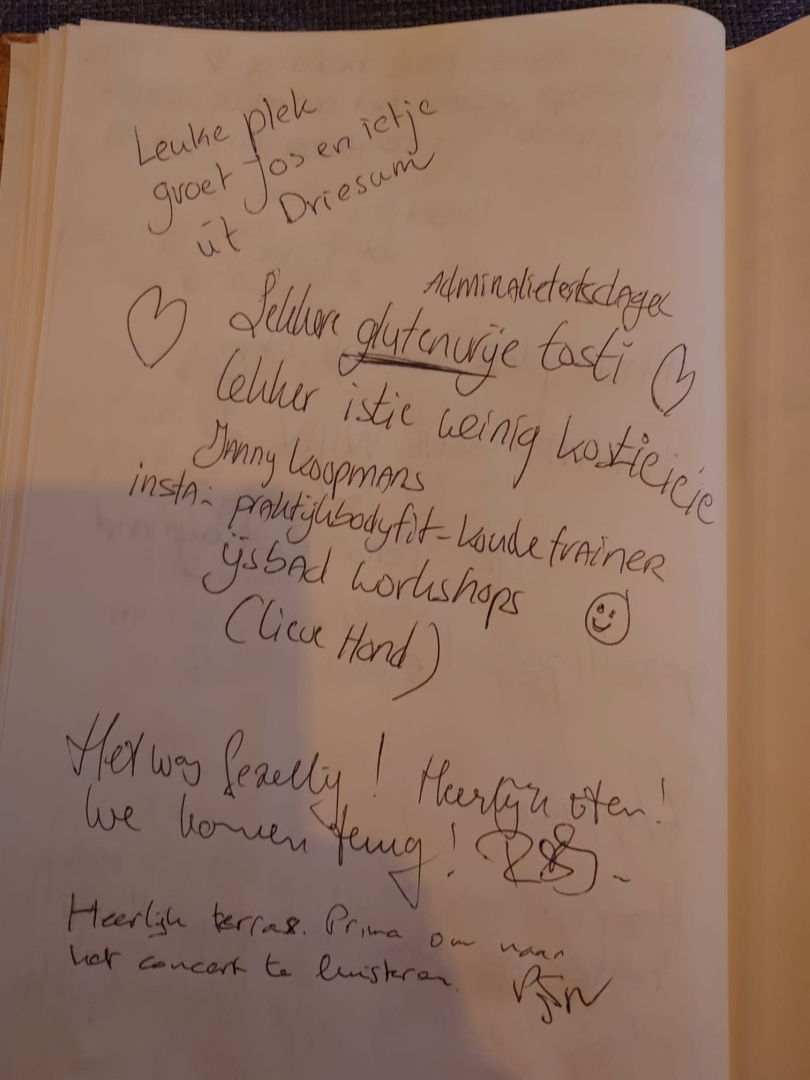 Leuke plek
groet Jos en ietje
út Driesum
Lekkere glutenvrije tosti
lekker istie weinig kostieieie
Jannny Koopmans
insta: praktijkbodyfit-koudetrainer
ijsbad workshops
(Lieve Hond)
Het was gezellig! Heerlijk eten!
We komen terug! R&J.
Heerlijk terras. Prima om naar
het concert te luisteren.